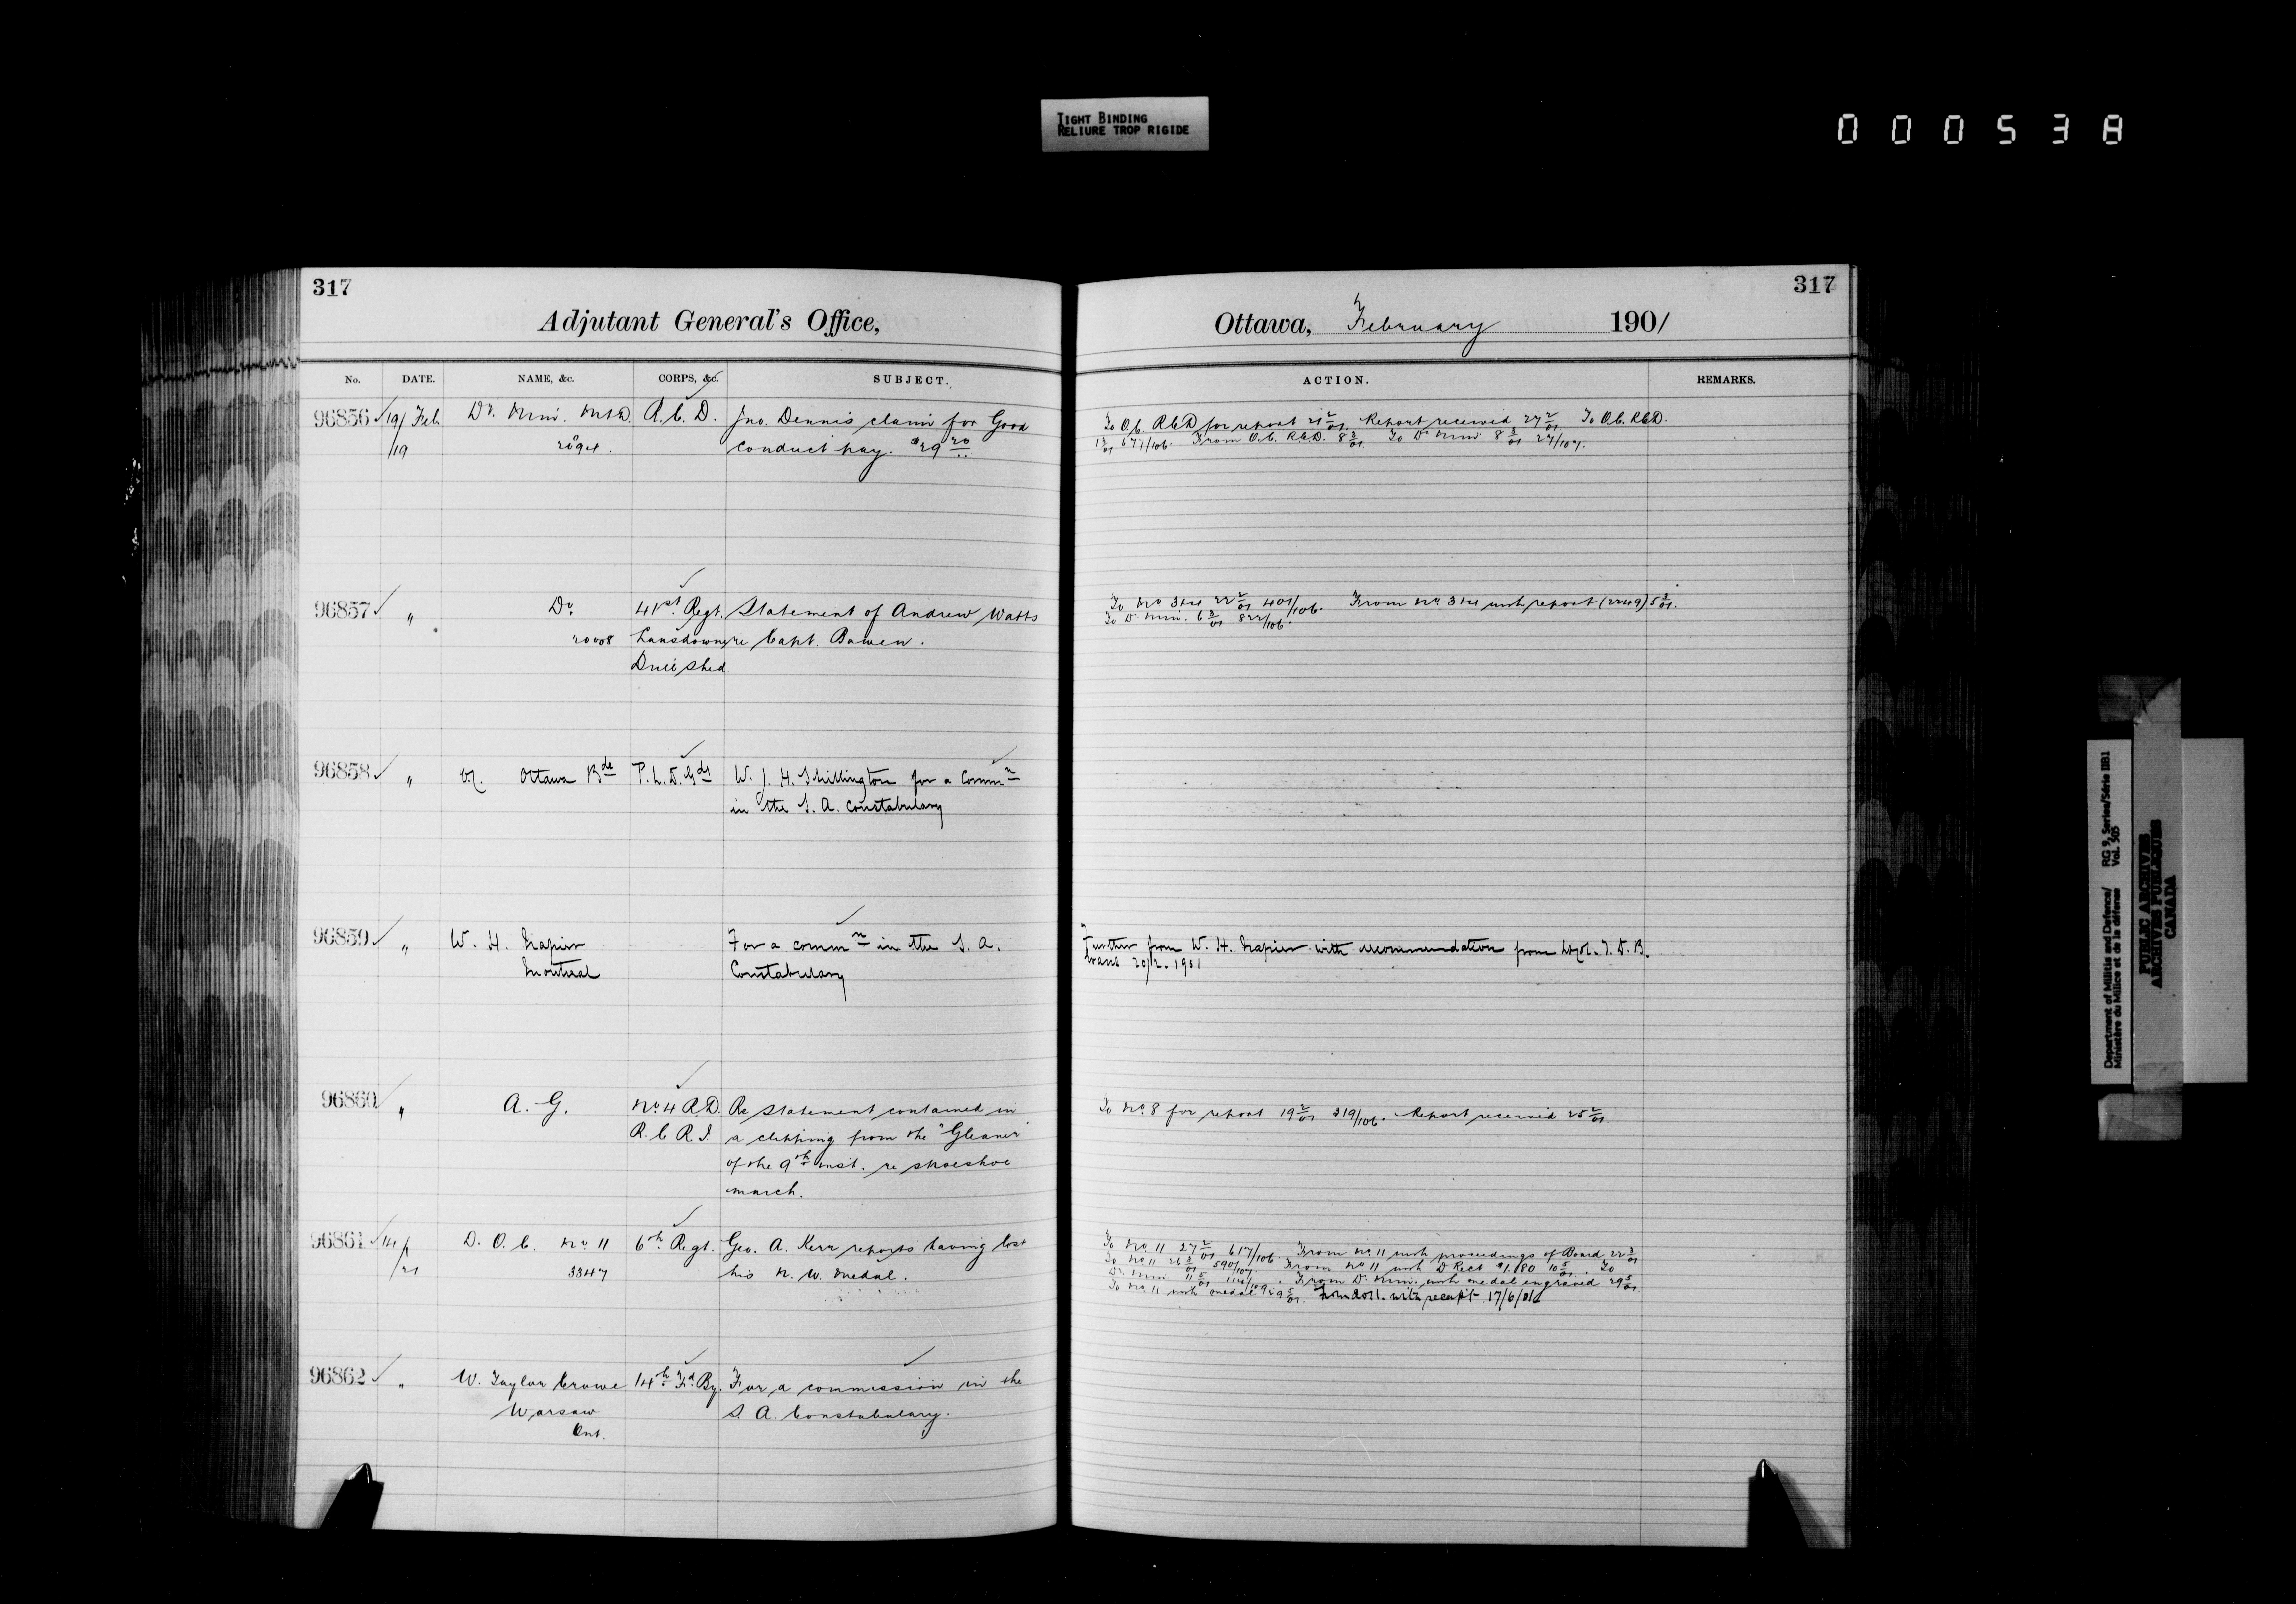 TIGHT BINDING
RELIURE TROP RIGIDE
000538
317
Adjutant General's Office,
No. DATE. NAME, &c. CORPS, &c. SUBJECT.
96856 19/ Feb Dr. Mini. M&D. R.C.D. Jno. Dennis claim for Good
/19 conduct pay. $29 20
96857 " Do. 41st Regt. Statement of Andrew Watts
20008 Lansdowne re Capt. Bowen.
Drill Shed
96858 " Ottawa Bde P.L.D.Gds W. J. H. Shillington for a Commn
in the S. A. Constabulary
96859 " W. H. Napier For a commn in the S. A.
Montreal Constabulary
96860 " A. G. No. 4 R.D. Re statement contained in
R.C.R.I. a clipping from the "Gleaner"
of the 9th inst. re snoeshoe
march.
96861 14/ D. O. C. No. 11 6th Regt. Geo. A. Kerr reports having lost
/21 3347 his N. W. Medal.
96862 " W. Taylor Crowe 14th Fd. By. For a commission in the
Warsaw S. A. Constabulary.
Ont.
317
Ottawa, February 1901
ACTION. REMARKS.
To O.C. R.C.D for report 21 2/01. Report received 27 2/01. To O.C. R.C.D.
1 3/01 677/106. From O.C. R.C.D. 8 3/01. To Dr. Mini 8 3/01 27/107.
To No. 3&4 22 2/01 401/106. From No. 3&4 with report (2249) 5 3/01.
To Dr. Mini. 6 3/01 822/106.
Further from W. H. Napier with recommendation from Lt Col. T. D. B.
Evans 20/2. 1901
To No. 8 for report 19 2/01 319/106. Report received 25 2/01.
To No. 11 27 2/01 617/106. From No. 11 with proceedings of Board 22 3/01
To No. 11 26 3/01 590/107. From No. 11 with D Rect $1.80 10 5/01. To
Dr. Mini 11 5/01 . From Dr. Mini. with medal engraved 29 5/01.
To No. 11 with medal 5/01. From Do 11. with receipt 17/6/01
Department of Militia and Defence/ RG 9, Series/Série IIB1
Ministère du Milice et de la défense Vol. 505
PUBLIC ARCHIVES
ARCHIVES PUBLIQUES
CANADA